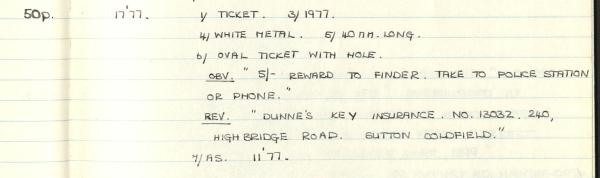 50p. 17'77. 1/ TICKET. 3/1977.
4/ WHITE METAL. 5/ 40 MM. LONG.
6/ OVAL TICKET WITH HOLE.
OBV. " 5/- REWARD TO FINDER. TAKE TO POLICE STATION
OR PHONE."
REV. " DUNNE'S KEY INSURANCE. NO. 13032. 240,
HIGHBRIDGE ROAD. SUTTON COLDFIELD."
7/ AS. 11'77.